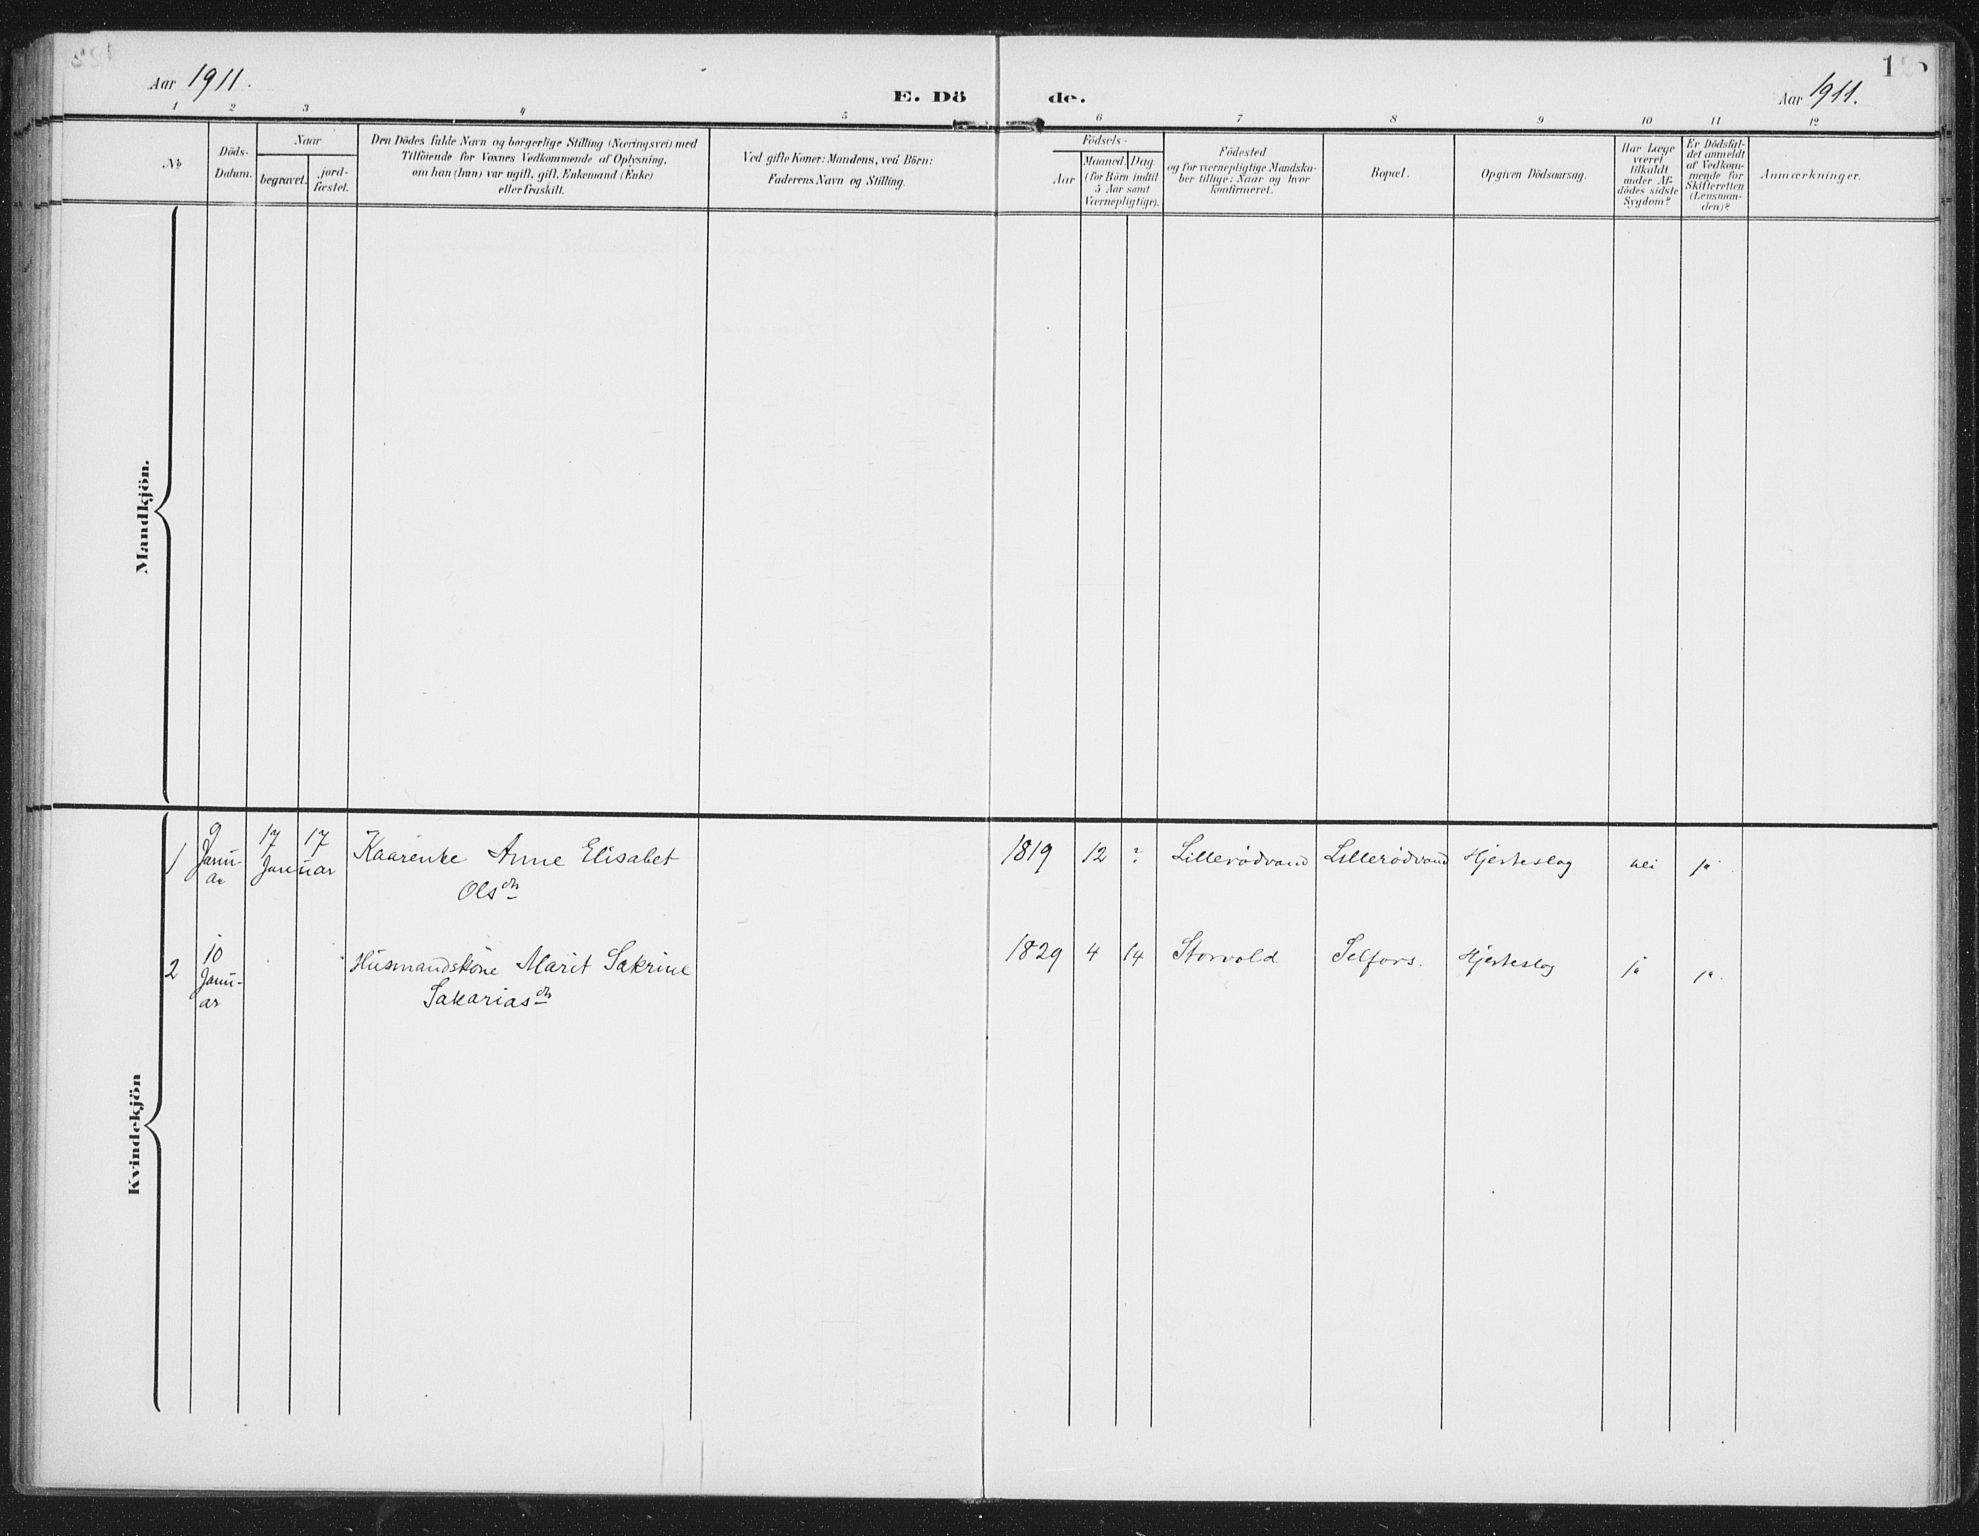 Aar 1911.
E. Döde.
Aar 1911.
1 2 3 4 5 6 7 8 9 10 11 12
No
Döds-
Datum.
Naar
begravet.
jord-
fæstet.
Den Dödes fulde Navn og borgerlige Stilling (Næringsvei) med
Tilföiende for Voxnes Vedkommende af Oplysning,
om han (hun) var ugift, gift, Enkemand (Enke)
eller fraskilt.
Ved gifte Koner: Mandens, ved Börn:
Faderens Navn og Stilling.
Födsels-
Aar
Maaned. Dag.
(for Börn indtil
5 Aar samt
Værnepligtige).
Födested
og for værnepligtige Mandska-
ber tillige: Naar og hvor
konfirmeret.
Bopæl.
Opgiven Dödsaarsag.
Har Læge
været
tilkaldt
under Af-
dödes sidste
Sygdom?
Er Dödsfal-
det anmeldt
af Vedkom-
mende for
Skifteretten
(Lensman-
den)?
Anmærkninger.
Mandkjön.
Kvindekjön
1 9 Janu-ar 17 17 Januar Kaarenke Anne Elisabet 1819 12 ? Lillerödvand Lillerödvand Hjerteslag nei ja
Olsdtr
2 10 Janu-ar Husmandskone Marit Sakrine 1829 4 14 Storvold Selfors. Hjerteslag ja ja.
Sakariasdtr